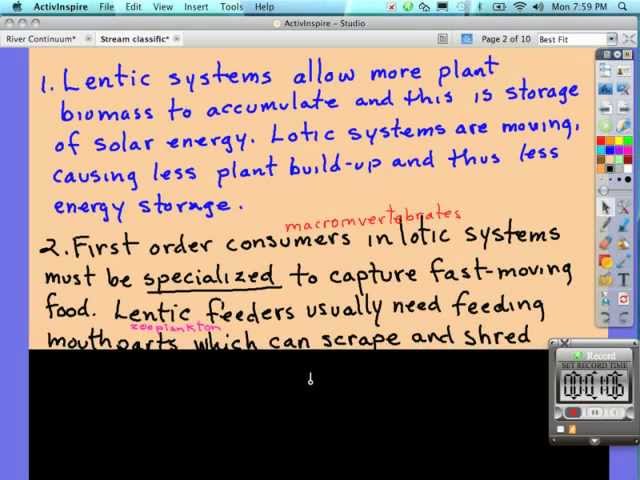 ActivInspire File Edit View Insert Tools Mon 7:59 PM
ActivInspire – Studio
River Continuum* Stream classific* Page 2 of 10 Best Fit
1. Lentic systems allow more plant
biomass to accumulate and this is storage
of solar energy. Lotic systems are moving,
causing less plant build-up and thus less
energy storage.
macromvertebrates
2. First order consumers in lotic systems
must be specialized to capture fast-moving
food. Lentic feeders usually need feeding
zooplankton
mouthparts which can scrape and shred
Record
SET RECORD TIME
00:01:06